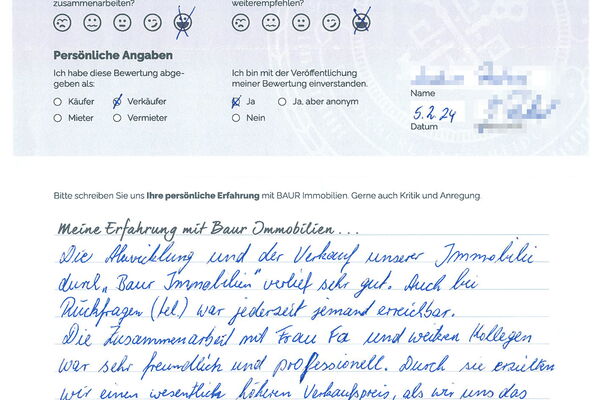 zusammenarbeiten?
weiterempfehlen?
Persönliche Angaben
Ich habe diese Bewertung abge-
geben als:
Käufer Verkäufer
Mieter Vermieter
Ich bin mit der Veröffentlichung
meiner Bewertung einverstanden.
Ja Ja, aber anonym
Nein
Name
5.2.24
Datum
Bitte schreiben Sie uns Ihre persönliche Erfahrung mit BAUR Immobilien. Gerne auch Kritik und Anregung.
Meine Erfahrung mit Baur Immobilien...
Die Abwicklung und der Verkauf unserer Immobilie
durch "Baur Immobilien" verlief sehr gut. Auch bei
Rückfragen (tel) war jederzeit jemand erreichbar.
Die Zusammenarbeit mit Frau Fa und weiteren Kollegen
war sehr freundlich und professionell. Durch sie erzielten
wir einen wesentlich höheren Verkaufspreis, als wir uns das